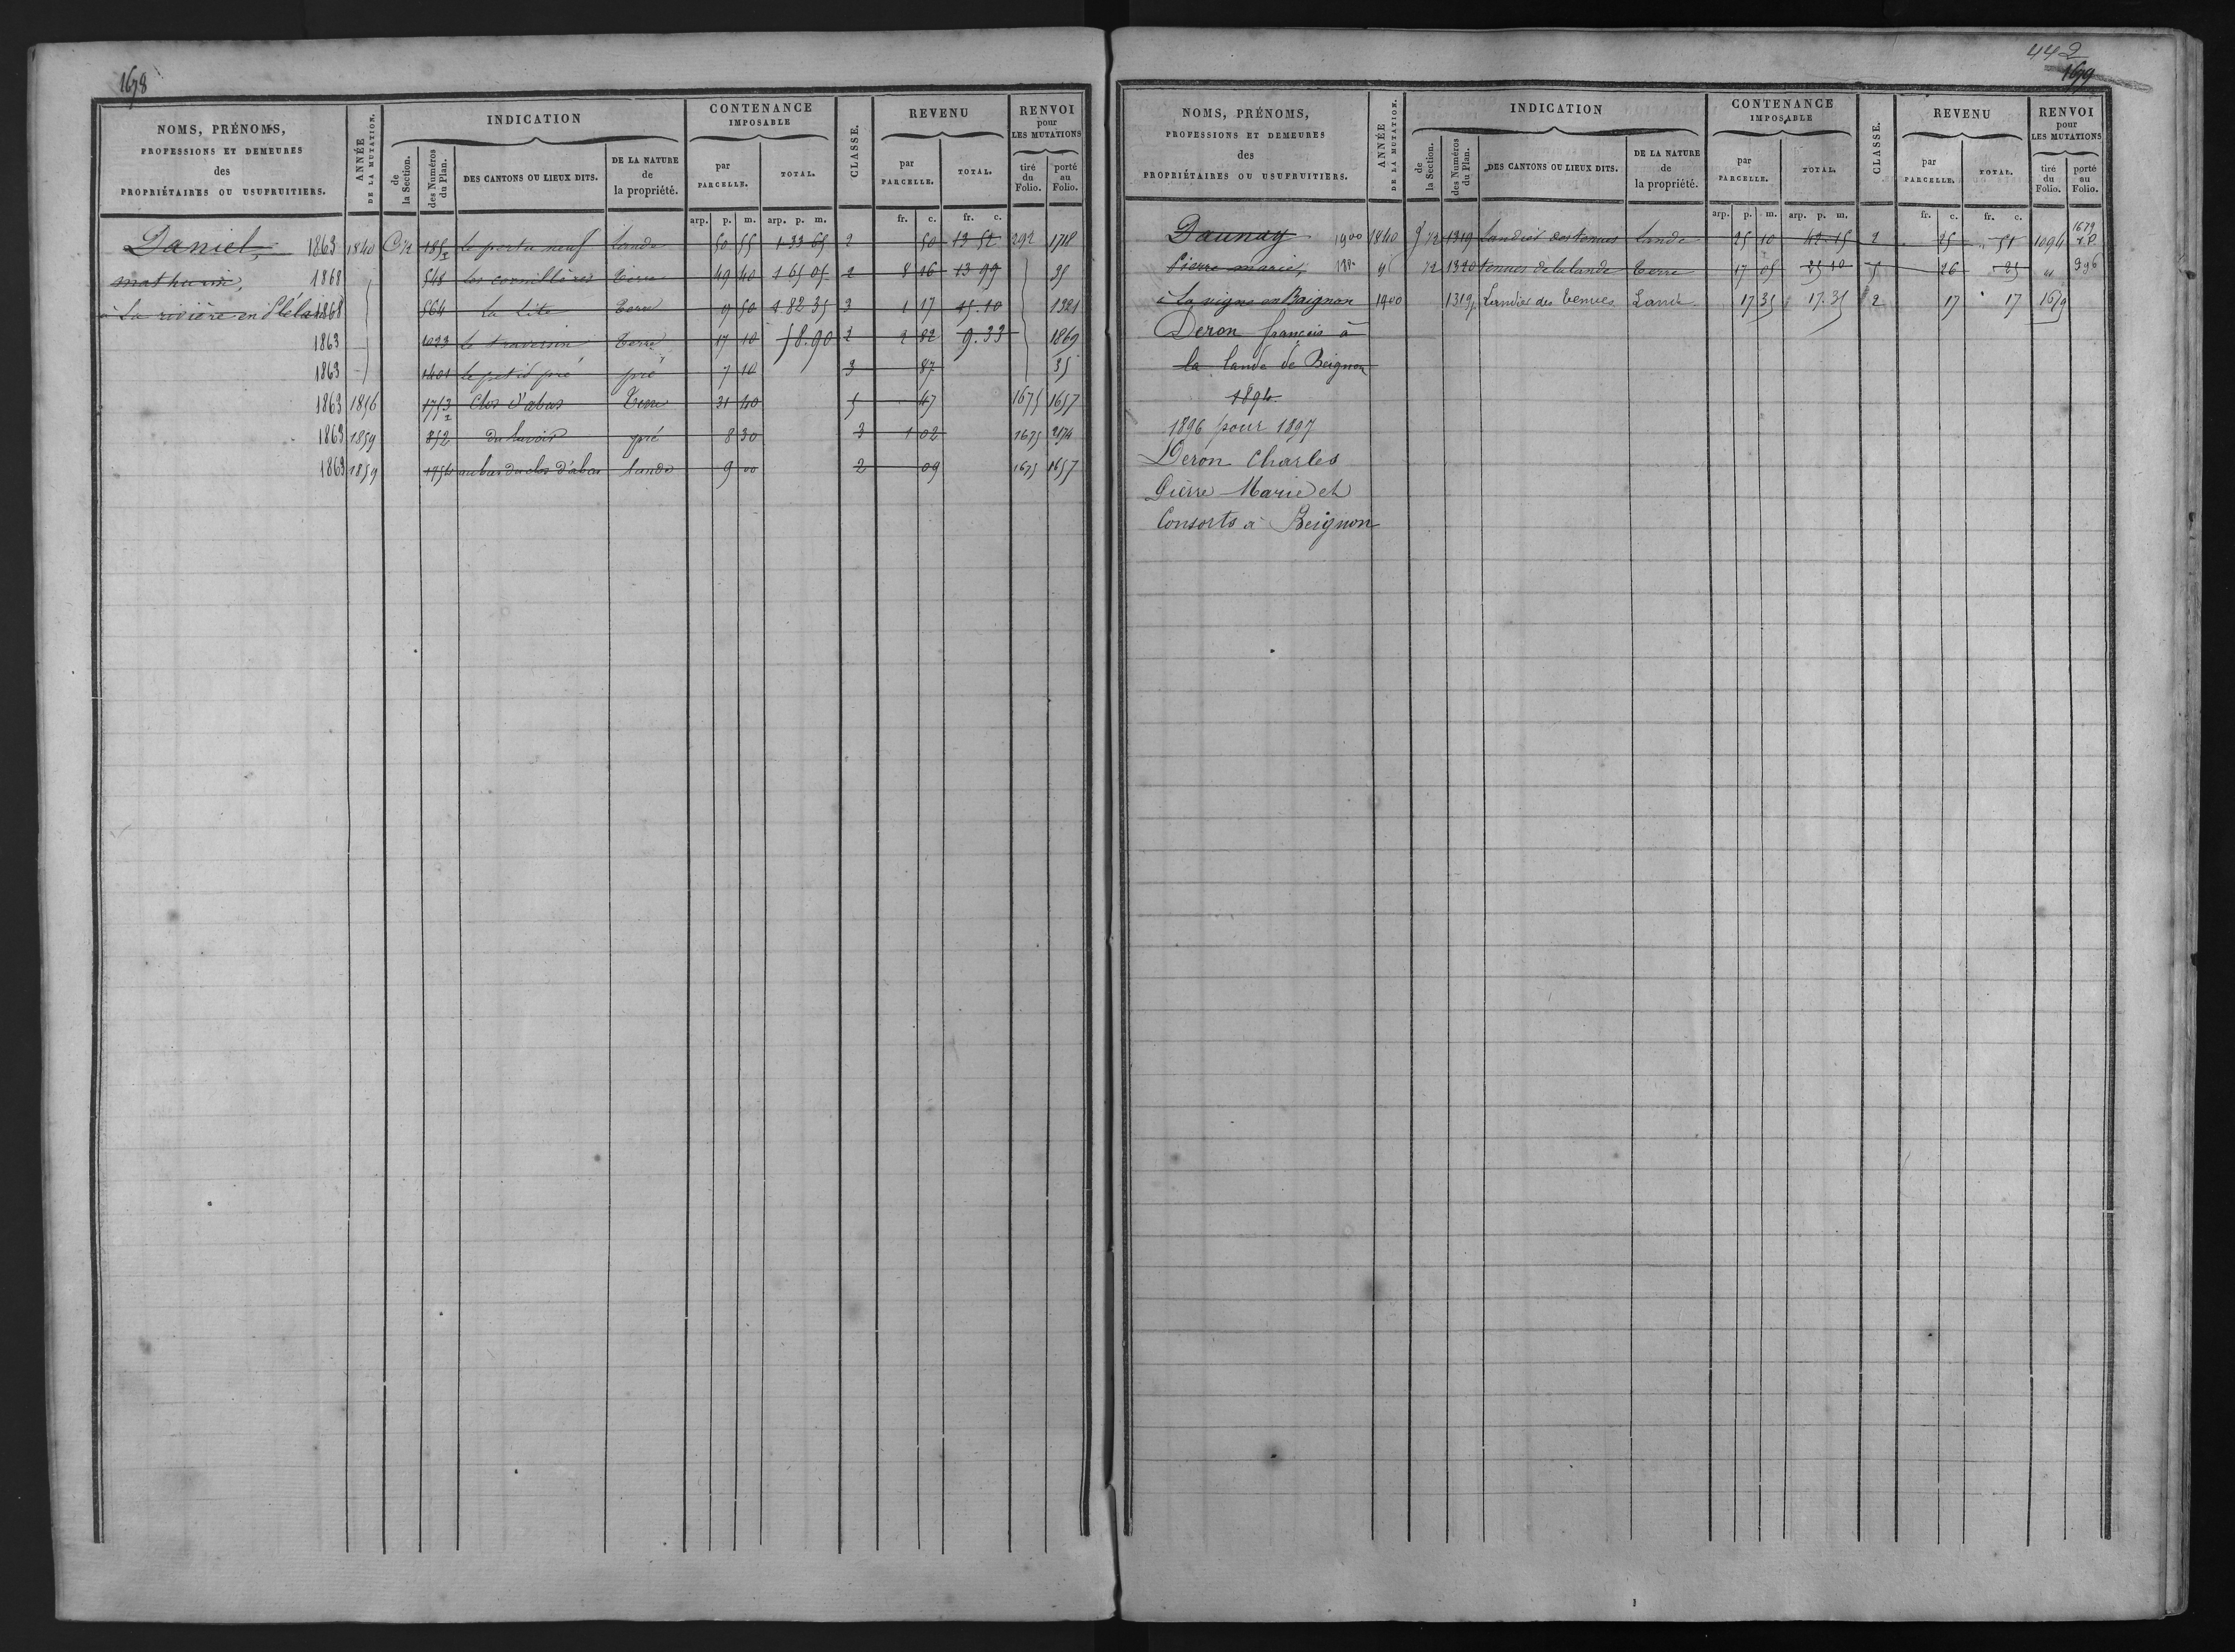 1678
NOMS, PRÉNOMS,
PROFESSIONS ET DEMEURES
des
PROPRIÉTAIRES OU USUFRUITIERS.
ANNÉE
DE LA MUTATION.
INDICATION
de
la Section.
des Numéros
du Plan.
DES CANTONS OU LIEUX DITS.
DE LA NATURE
de
la propriété.
CONTENANCE
IMPOSABLE
par
PARCELLE.
TOTAL.
CLASSE.
REVENU
par
PARCELLE.
TOTAL.
RENVOI
pour
LES MUTATIONS
tiré
du
Folio.
porté
au
Folio.
arp. p. m. arp. p. m. fr. c. fr. c.
Daniel, 1863 1840 le portu neuf Lande 50 55 1 33 65 2 50 13 52 292 1718
mathurin, 1868 548 les cormillères Terre 49 40 1 65 05 2 8 16 13 99 35
à La rivière en Plélan 1868 564 La Lite Terre 9 50 1 82 35 3 1 17 15.10 1321
1863 1023 le traversin Terre 17 10 58.90 2 2 82 9.33 1869
1863 1401 le petit pré pré 7 10 3 87 35
1863 1856 1753 Clos d'abas Terre 31 40 5 47 1675 1657
1863 1859 852 du lavoir pré 8 30 3 1 02 1675 2174
1863 1859 1754 au bas du clos d'abas Lande 9 00 2 09 1675 1657
442
1679
NOMS, PRÉNOMS,
PROFESSIONS ET DEMEURES
des
PROPRIÉTAIRES OU USUFRUITIERS.
ANNÉE
DE LA MUTATION.
INDICATION
de
la Section.
des Numéros
du Plan.
DES CANTONS OU LIEUX DITS.
DE LA NATURE
de
la propriété.
CONTENANCE
IMPOSABLE
par
PARCELLE.
TOTAL.
CLASSE.
REVENU
par
PARCELLE.
TOTAL.
RENVOI
pour
LES MUTATIONS
tiré
du
Folio.
porté
au
Folio.
arp. p. m. arp. p. m. fr. c. fr. c.
1679
Daunay 1900 1840 1319 Landier des tenues Lande 25 10 42.15 2 25 51 1094
Pierre marie, 1320 tenues de la lande Terre 17 05 25 10 5 26 25 396
à La vigne en Baignon 1900 1319 Landier des tenues Lande 17 35 17.35 2 17 17 1679
Deron françois à
la lande de Beignon
1894
1896 pour 1897
Deron Charles
Pierre Marie et
Consorts à Beignon